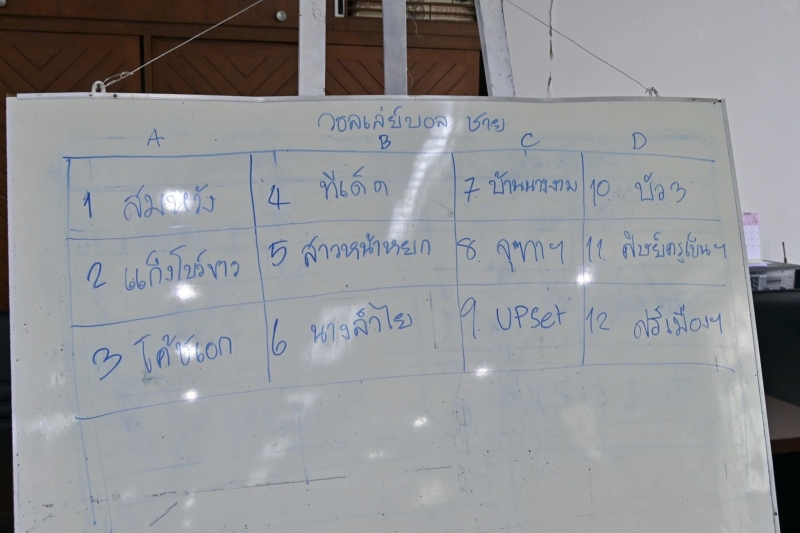 วอลเล่ย์บอล ชาย
A B C D
1 สมหวัง 4 ทีเด็ด 7. บ้านนางงาม 10. บัว 3
2 แก๊งโบว์ขาว 5 สาวหน้าหยก 8. จุฑาฯ 11. ศิษย์ครูเขียนฯ
3 โค้ชเอก 6 นางลำไย 9. UPSet 12 ศรีเมืองฯ